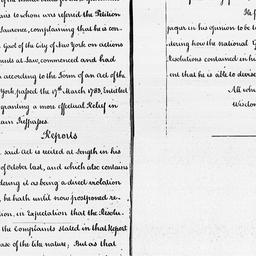 ans to whom was referred the Petition
Lawrence, complaining that he is con-
Gaol of the City of New York on actions
ments at Law, commenced and had
according to the Form of an Act of the
York, passed the 17th March 1783, Entitled
granting a more effectual Relief in
tain Trespasses.
Reports
said Act is recited at length in his
of October last, and which also contains
dering it as being a direct violation
he hath until now postponed re-
tion, in Expectation that the Resolu-
the Complaints stated in that Report
ase of the like nature; But as that
He f
pears in his opinion to be t
dering how the national G
Resolutions contained in his
ent that he is able to devise
All whi
Wisdom